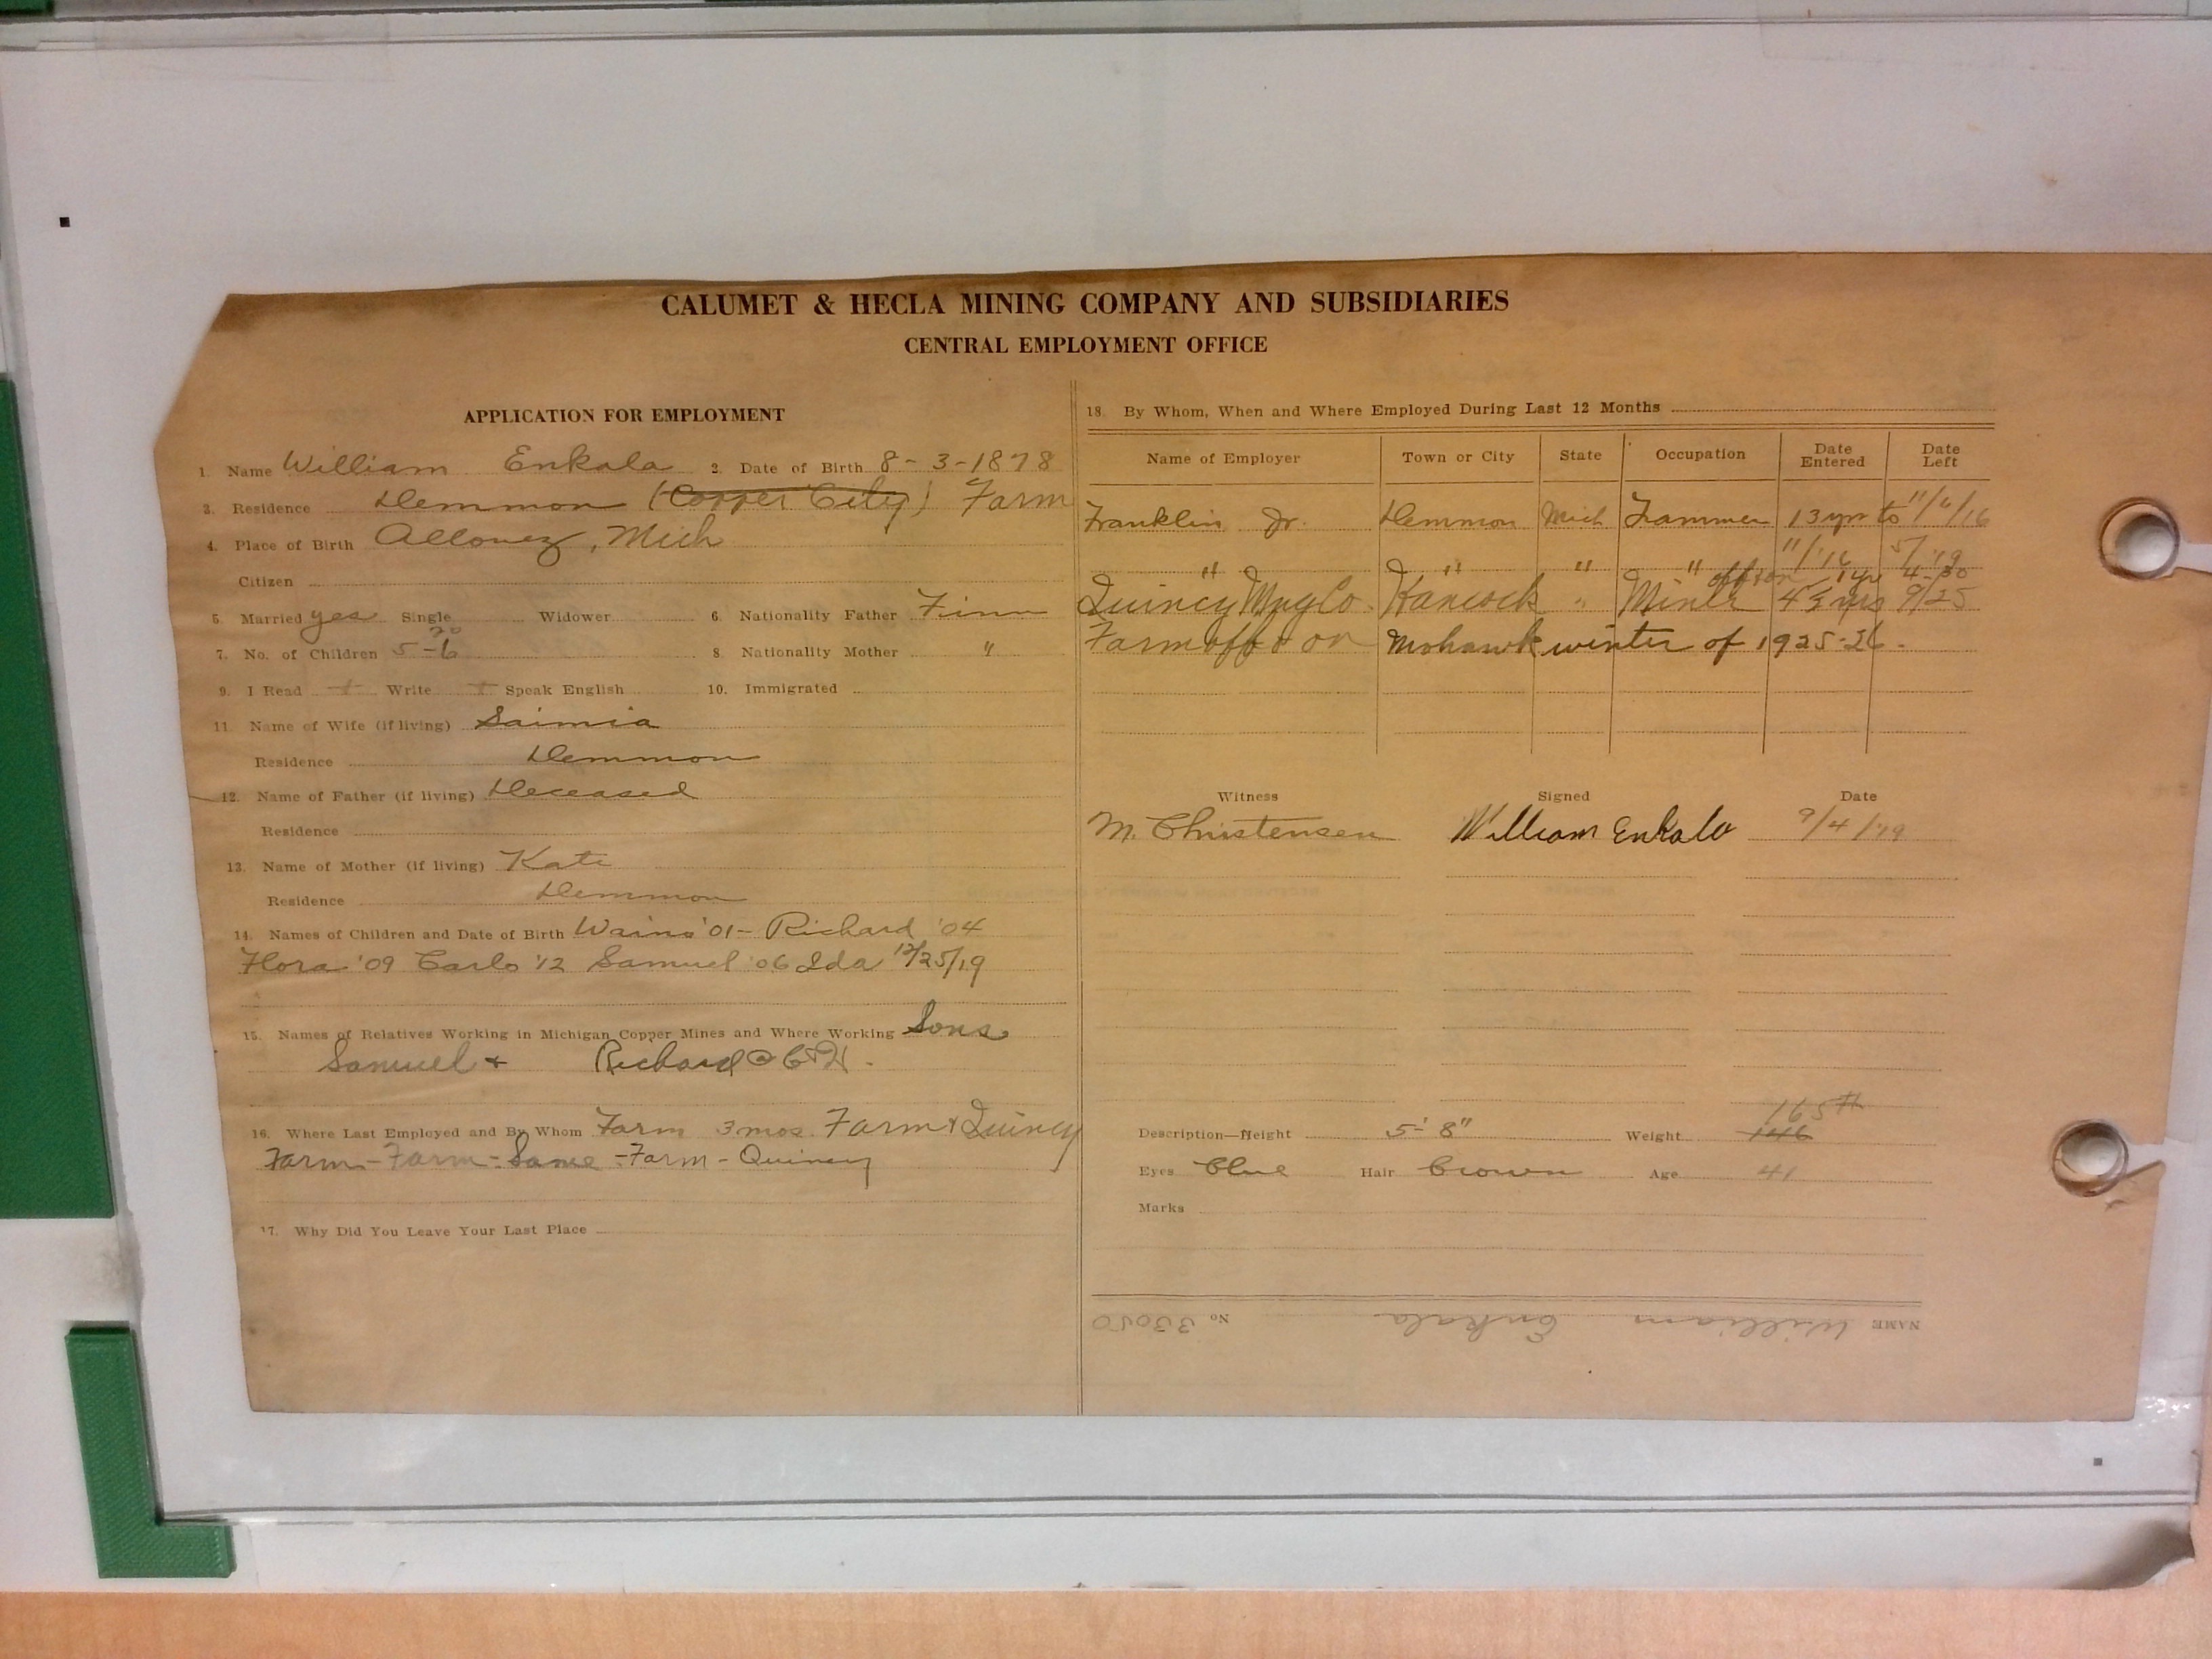 CALUMET & HECLA MINING COMPANY AND SUBSIDIARIES
CENTRAL EMPLOYMENT OFFICE
APPLICATION FOR EMPLOYMENT
1. Name William Enkala 2. Date of Birth 8-3-1878
3. Residence Demmon (Copper City) Farm
4. Place of Birth Allouez, Mich
Citizen
5. Married yes Single Widower 6. Nationality Father Finn
7. No. of Children 5-6 8. Nationality Mother "
9. I Read + Write + Speak English 10. Immigrated
11. Name of Wife (if living) Saimia
Residence Demmon
12. Name of Father (if living) Deceased
Residence
13. Name of Mother (if living) Kate
Residence Demmon
14. Names of Children and Date of Birth Waino '01- Richard '04
Flora '09 Carlo '12 Samuel '06 Ida 12/25/19
15. Names of Relatives Working in Michigan Copper Mines and Where Working Sons
Samuel + Richard @ C+H.
16. Where Last Employed and By Whom Farm 3 mos. Farm + Quincy
Farm-Farm-Same-Farm-Quincy
17. Why Did You Leave Your Last Place
18. By Whom, When and Where Employed During Last 12 Months
Name of Employer Town or City State Occupation Date Entered Date Left
Franklin Jr. Demmon Mich Trammer 13 yrs to 11/6/16
" " " " 11/'16 5/'19
off + on 1 yr 4-30
Quincy Mng Co. Hancock " Miner 4½ yrs 9/25
Farm off + on Mohawk winter of 1925-26.
Witness Signed Date
M. Christensen William Enkala 9/4/'19
165 #
Description—Height 5-8" Weight 146
Eyes Blue Hair Brown Age 41
Marks
NAME William Enkala No 33050